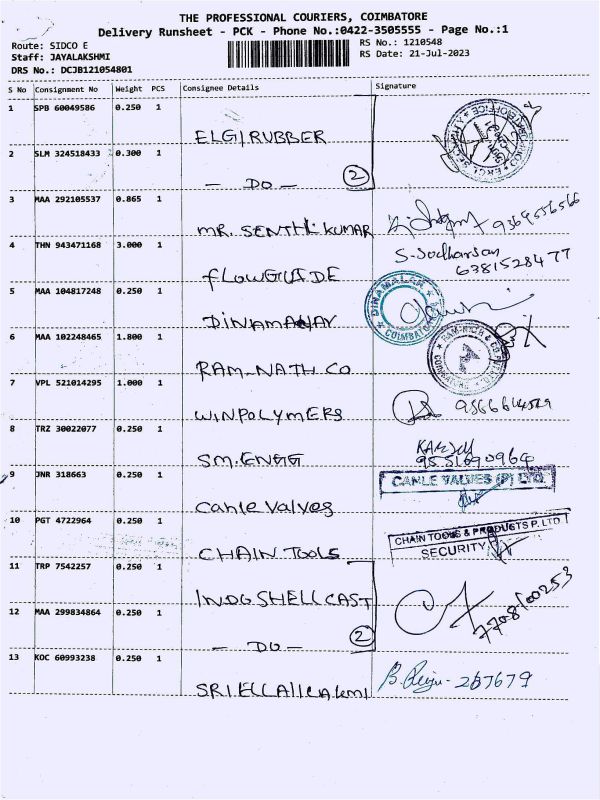 THE PROFESSIONAL COURIERS, COIMBATORE
Delivery Runsheet - PCK - Phone No.:0422-3505555 - Page No.:1
Route: SIDCO E
Staff: JAYALAKSHMI
DRS No.: DCJB121054801
RS No.: 1210548
RS Date: 21-Jul-2023
S No Consignment No Weight PCS Consignee Details Signature
1 SPB 60049586 0.250 1
ELGI RUBBER
2 SLM 324518433 0.300 1
- DO - 2
3 MAA 292105537 0.865 1
MR. SENTHIL KUMAR 9569556566
4 THN 943471168 3.000 1
S-Sodharsan
FLOWGUIDE 6381528477
5 MAA 104817248 0.250 1
DINAMALAR
COIMBATORE
DINAMALAR
6 MAA 102248465 1.800 1
RAM-NATH CO
RAM-NATH & CO
7 VPL 521014295 1.000 1
WINPOLYMERS
8 TRZ 30022077 0.250 1
SM.ENGG 9551690964
9 JNR 318663 0.250 1
CANLE VALVES (P) LTD.
Canle Valves
10 PGT 4722964 0.250 1
CHAIN TOOLS & PRODUCTS P. LTD
SECURITY
CHAIN TOOLS
11 TRP 7542257 0.250 1
INDO SHELL CAST 7708100253
12 MAA 299834864 0.250 1
- DO - 2
13 KOC 60993238 0.250 1
B. - 267679